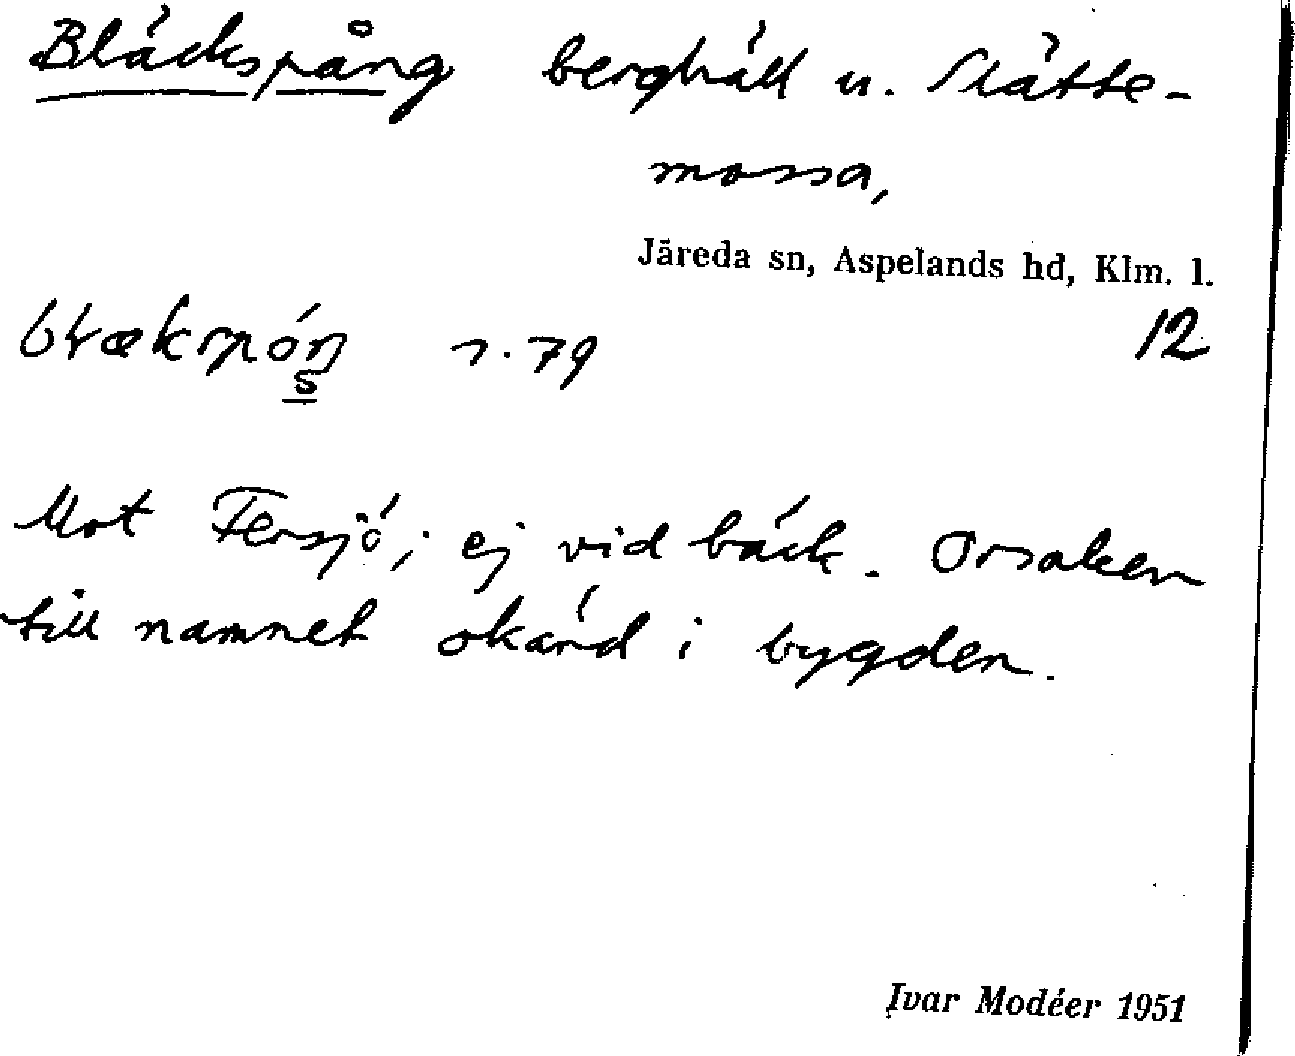 Bläckspång berghäll u. Slätte-
mossa,
Järeda sn, Aspelands hd, Klm. l.
12
s. 79
Mot Fersjö; ej vid bäck. Orsaken
till namnet okänd i bygden.
Ivar Modéer 1951